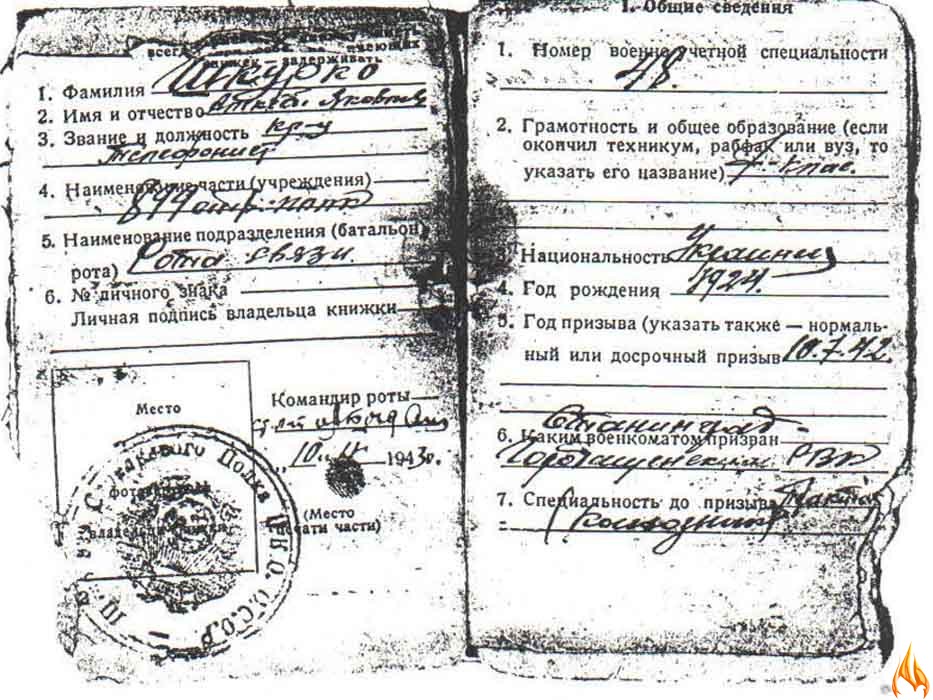 всег
книжек задерживать
1. Фамилия Шкурко
2. Имя и отчество Яковлев
3. Звание и должность кр-ц
телефонист
4. Наименование части (учреждения)
899 стр. полк
5. Наименование подразделения (батальон,
рота) Рота связи
6. № личного знака
Личная подпись владельца книжки
Место
фотокарточки
владельца
Командир роты
10 1943г.
(Место
печати части)
Стрелкового Полка Н.К.О. С.С.С.Р.
2
I. Общие сведения
1. Номер военно-учетной специальности
2. Грамотность и общее образование (если
окончил техникум, рабфак или вуз, то
указать его название) 7-клас.
3. Национальность Украинец
4. Год рождения 1924
5. Год призыва (указать также — нормаль-
ный или досрочный призыв 10.7.42.
6. Каким военкоматом призван
РВК
7. Специальность до призыва
(колхозник)